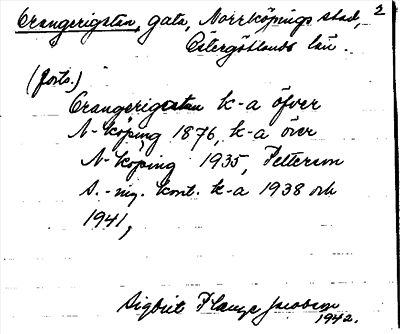 Orangerigatan, gata, Norrköpings stad, 2
Östergötlands län.
(forts.)
Orangerigatan k-a öfver
N-köping 1876, k-a över
N-köping 1935, Petterson
s.-ing. kont. k-a 1938 och
1941,
Sigbrit Plænge Jacobson
1942.